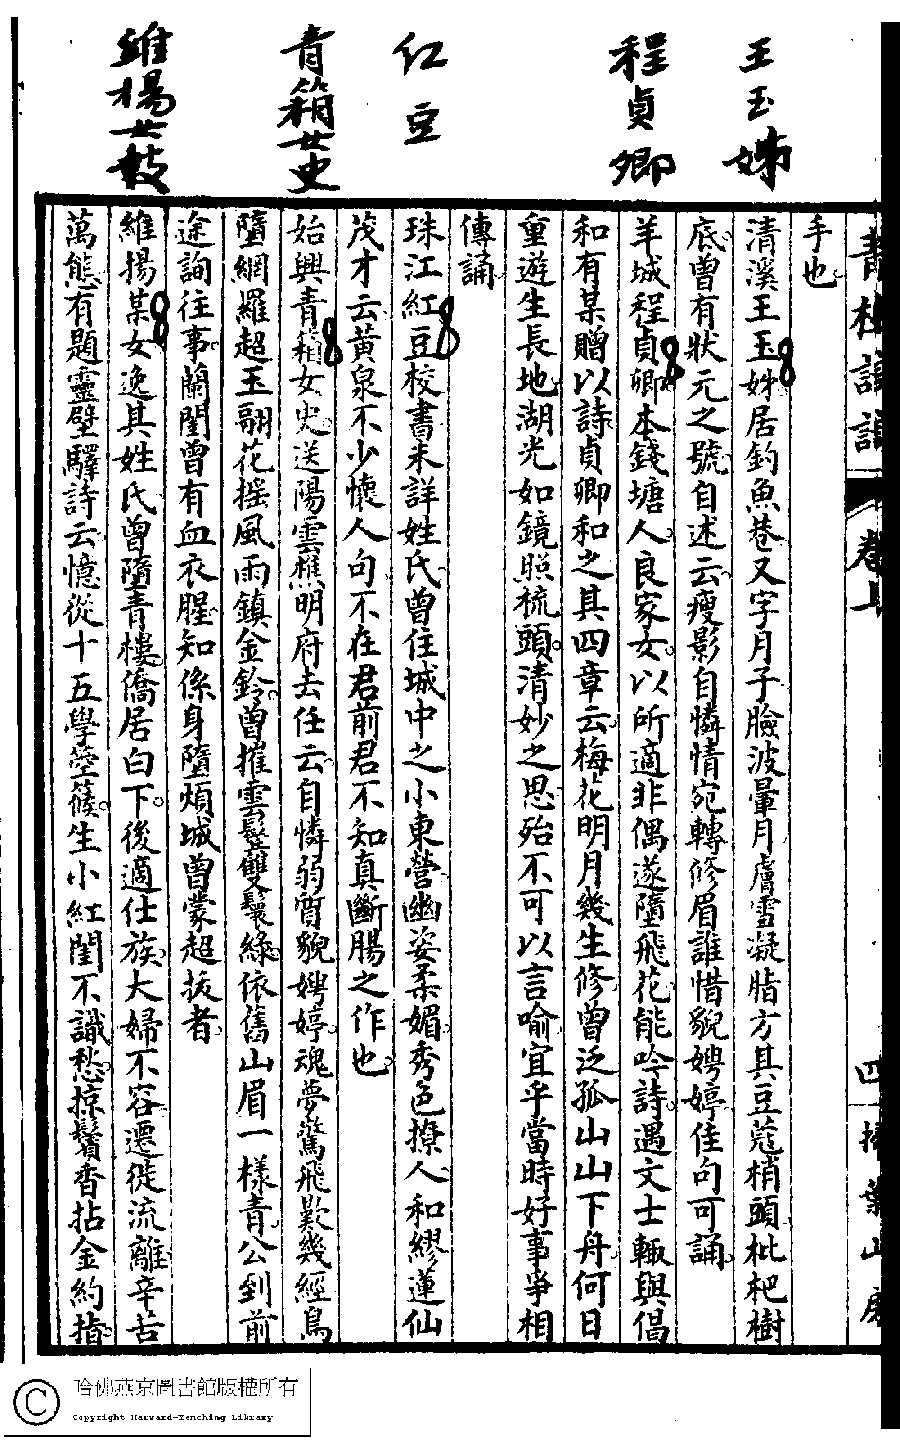 王玉姊
程貞卿
仁豆
青箱女史
維揚女妓
手也
清溪王玉姝居釣魚巷又字月子臉波暈月膚雪凝脂方其豆蔻梢頭枇杷樹
底曾有狀元之號自述云瘦影自憐情宛轉修眉誰惜貌娉婷佳句可誦
羊城程貞卿本錢塘人良家女以所適非偶遂墮飛花能吟詩遇文士輒與倡
和有某贈以詩貞卿和之其四章云梅花明月幾生修曾泛孤山山下舟何日
重遊生長地湖光如鏡照梳頭清妙之思殆不可以言喻宜乎當時好事爭相
傳誦
珠江紅豆校書未詳姓氏曾住城中之小東營幽姿柔媚秀色撩人和繆蓮仙
茂才云黃泉不少懷人句不在君前君不知真斷腸之作也
始興青箱女史送陽雲樵明府去任云自憐弱質貌娉婷魂夢驚飛歎幾經鳥
墮網羅超玉翮花搖風雨鎮金鈴曾摧雲鬢雙鬟綠依舊山眉一樣青公到前
途詢往事蘭閨曾有血衣腥知係身墮煩城曾蒙超拔者
維揚某女逸其姓氏曾墮青樓僑居白下後適仕族大婦不容遷徙流離辛苦
萬態有題靈壁驛詩云憶從十五學箜篌生小紅閨不識愁掠鬢香拈金約指
卷七
四
掃葉山房
哈佛燕京圖書館版權所有
Copyright Harvard-Yenching Library